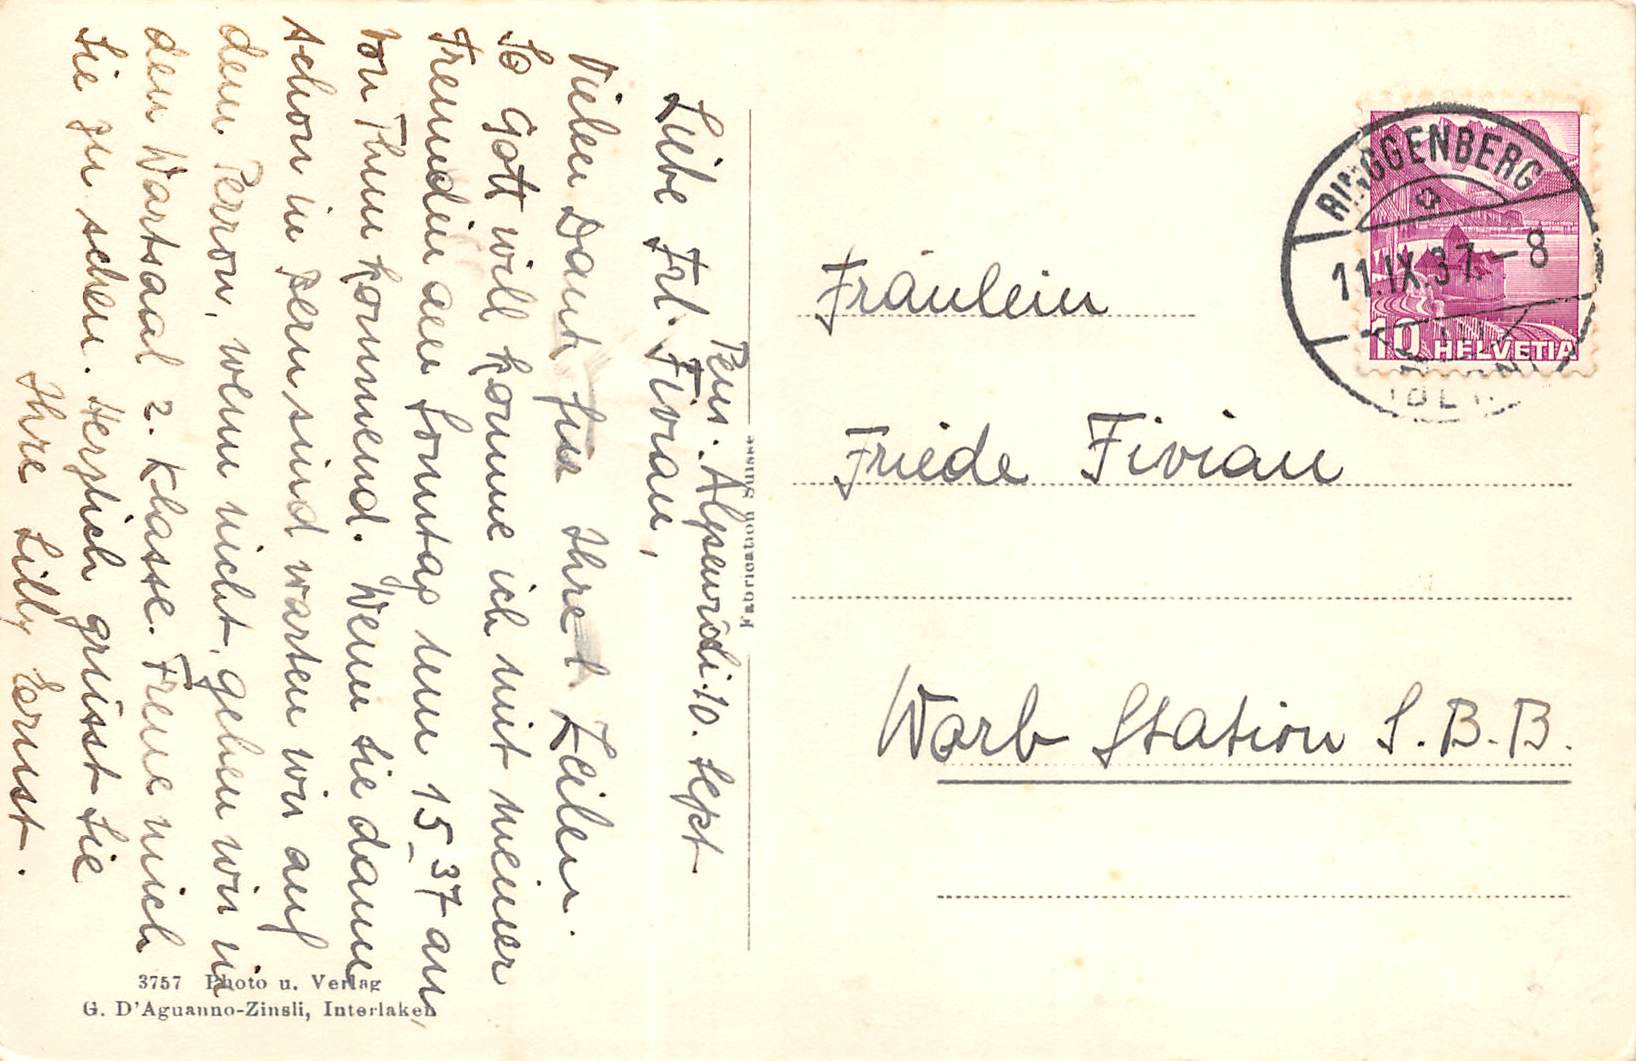 Pens. Alpenrösli. 10. Sept
Liebe Frl. Fivian,
Vielen Dank für Ihre l. Zeilen.
So Gott will komme ich mit meiner
Freundin am Sonntag um 15 37 an,
von Thun kommend. Wenn Sie dann
schon in Bern sind warten wir auf
dem Perron, wenn nicht, gehen wir in
den Wartsaal 2. Klasse. Freue mich
Sie zu sehen. Herzlich grüsst Sie
Ihre Lilly Ernst.
3757 Photo u. Verlag
G. D'Aguanno-Zinsli, Interlaken
Fabrication Suisse
RINGGENBERG
11.IX.37.–8
10 HELVETIA
Fräulein
Friede Fivian
Worb Station S.B.B.